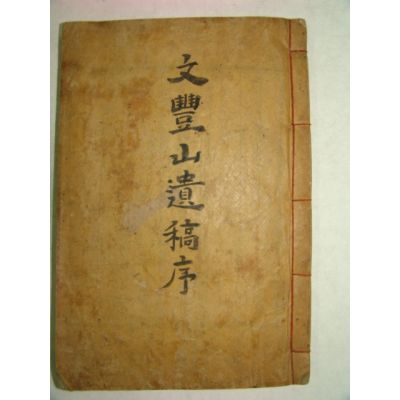 文豐山遺稿序